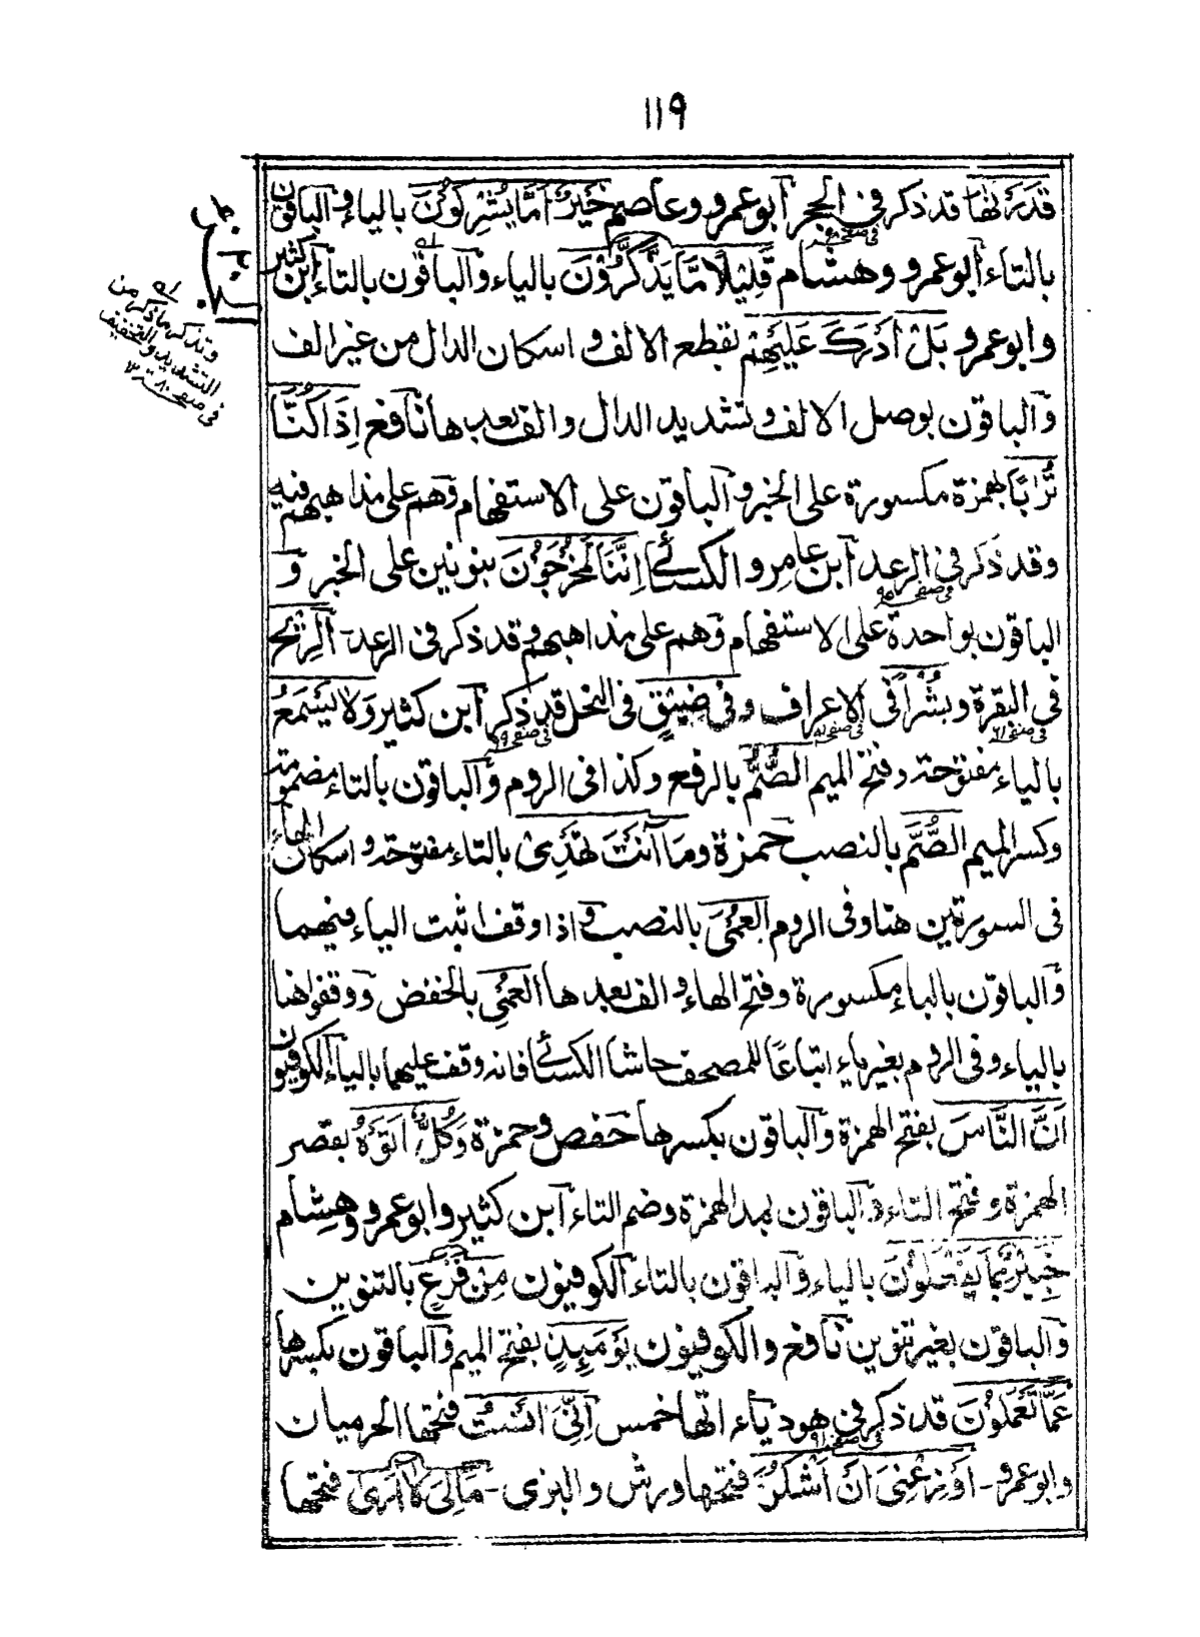 ١١٩
قَدَّرْنٰهَا قد ذكر فى الحجر ابو عمرو وعاصم خَيْرٌ اَمَّا يُشْرِكُوْنَ بالياء والباقون
فى صفحه
بالتاء ابو عمرو وهشام قَلِيْلًا مَّا يَذَّكَّرُوْنَ بالياء والباقون بالتاء ابن كثير
وابو عمرو بَلْ اَدْرَكَ عَلَيْهِمْ بقطع الالف و اسكان الدال من غير الف
والباقون بوصل الالف و تشديد الدال والف بعدها نافع اِذَا كُنَّا
تُرَابًا بهمزة مكسورة على الخبر والباقون على الاستفهام وهم على مذاهبهم فيه
وقد ذكر فى الرعد ابن عامر والكسائى اِنَّنَا لَمُخْرَجُوْنَ بنونين على الخبر و
فى صفحه ٩٥
الباقون بواحدة على الاستفهام وهم على مذاهبهم وقد ذكر فى الرعد الرِّيٰحَ
فى البقرة و بُشْرًا فى الاعراف و فى ضَيْقٍ فى النحل قد ذكر ابن كثير وَلَا يَسْمَعُ
بالياء مفتوحة وفتح الميم الصُّمُّ بالرفع وكذا فى الروم والباقون بالتاء مضمومة
وكسر الميم الصُّمَّ بالنصب حمزة وَمَا اَنْتَ تَهْدِىْ بالتاء مفتوحة واسكان الهاء
فى السورتين هنا وفى الروم العُمْىَ بالنصب واذا وقف اثبت الياء فيهما
والباقون بالباء مكسورة وفتح الهاء والف بعدها العُمْىِ بالخفض ووقفوا هنا
بالياء وفى الروم بغير ياء اتباعًا للمصحف حاشا الكسائى فانه وقف عليهما بالياء الكوفيون
اَنَّ النَّاسَ بفتح الهمزة والباقون بكسرها حفص وحمزة وَكُلٌّ اَتَوْهُ بقصر
الهمزة وفتح التاء والباقون بمد الهمزة وضم التاء ابن كثير وابو عمرو وهشام
خَبِيْرٌ بِمَا يَفْعَلُوْنَ بالياء والباقون بالتاء الكوفيون مِنْ فَزَعٍ بالتنوين
والباقون بغير تنوين نافع والكوفيون يَوْمَئِذٍ بفتح الميم والباقون بكسرها
عَمَّا تَعْمَلُوْنَ قد ذكر فى هود ياءاتها خمس اِنِّىْ اٰنَسْتُ فتحها الحرميان
وابو عمرو - اَوْزِعْنِىْ اَنْ اَشْكُرَ فتحها ورش والبزى - مَالِىَ لَا اَرَى فتحها
وتذكر ما ذكر من
التشديد والتخفيف